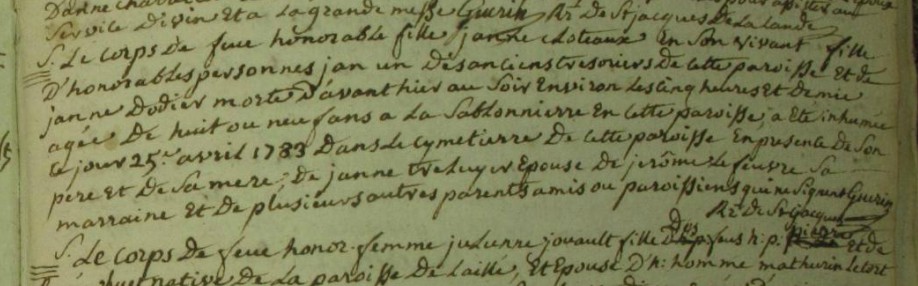 Servile Divin Et a La grande messe Guerin Rr. De St jacques De La Lande
S. Le corps De feue honorable fille janne cloteaux En Son Vivant fille
D'honorables personnes jan un Des anciens tresoriers De cette paroisse Et de
janne Dodier morte D'avant hier au Soir Environ Les cinq heures Et Demie
agée De huit ou neuf ans a La Sablonnierre En cette paroisse, a Eté inhumée
ce jour 25e. avril 1783 Dans Le Cymetierre De cette paroisse En presence De Son
père Et De Sa mere; De janne treluyer Epouse De jerôme Le feuvre Sa
marraine Et De plusieurs autres parents amis ou paroissiens qui ne Signent Guerin
Rr. De St jacques
S. Le corps De feue honor. femme julienne jouault fille Des feus h. p. pierre Et de
native De La paroisse De Laillé, Et Epouse D'h: homme mathurin Letort